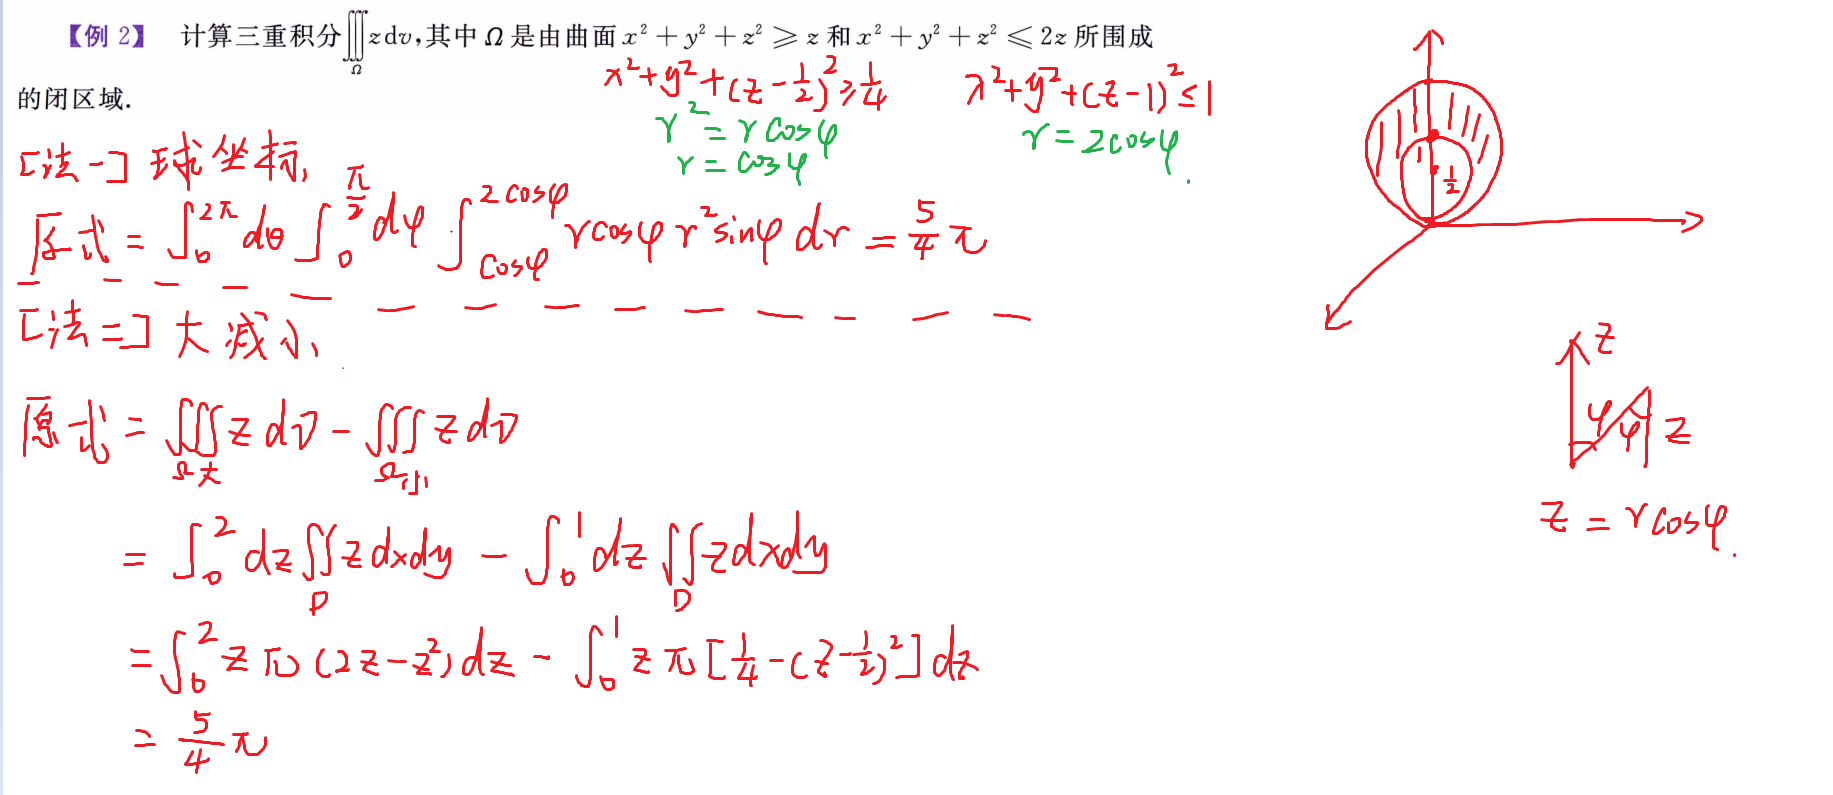 【例 2】 计算三重积分∭_Ω zdv,其中 Ω 是由曲面 x² + y² + z² ⩾ z 和 x² + y² + z² ⩽ 2z 所围成
的闭区域.
x²+y²+(z-1/2)²⩾1/4 x²+y²+(z-1)²≤1
r²=rcosφ r=2cosφ.
r=cosφ
[法一] 球坐标,
原式=∫₀^{2π}dθ∫₀^{π/2}dφ∫_{cosφ}^{2cosφ} rcosφ r²sinφ dr = 5/4 π
[法二] 大减小
原式=∭_{Ω大} z dv - ∭_{Ω小} z dv
=∫₀² dz∬_D z dxdy - ∫₀¹ dz∬_D z dxdy
=∫₀² z π(2z-z²)dz - ∫₀¹ z π[1/4-(z-1/2)²]dz
=5/4 π
1/2
z
φ φ z
z=rcosφ.